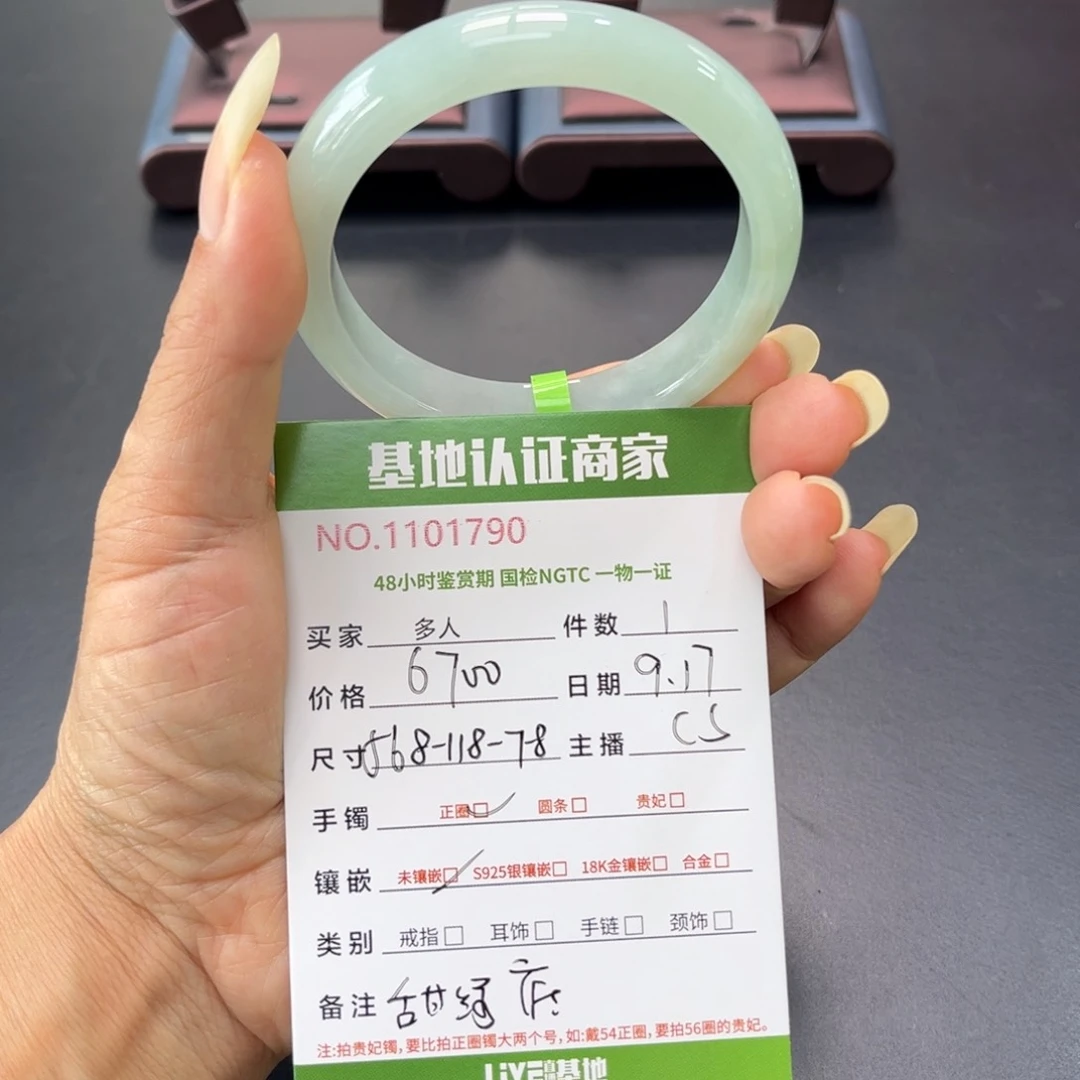 基地认证商家
NO.1101790
48小时鉴赏期 国检NGTC 一物一证
买家 多人 件数 1
价格 6700 日期 9.17
尺寸 568-118-78 主播 CS
手镯 正圈□ 圆条□ 贵妃□
镶嵌 未镶嵌□ S925银镶嵌□ 18K金镶嵌□ 合金□
类别 戒指□ 耳饰□ 手链□ 颈饰□
备注 甜绿底
注:拍贵妃镯,要比拍正圈镯大两个号,如:戴54正圈,要拍56圈的贵妃。
LiVE直播基地